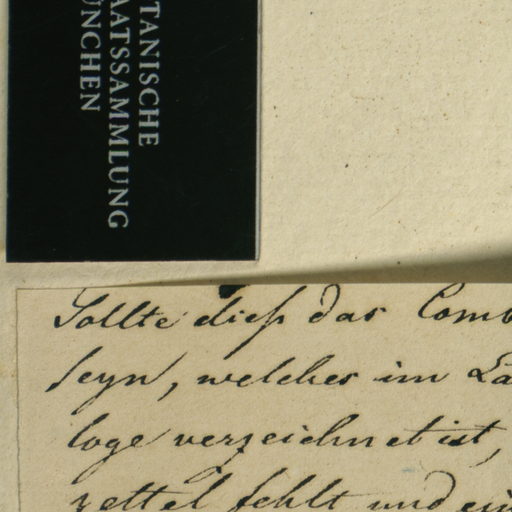 TANISCHE
AATSSAMMLUNG
ÜNCHEN
Sollte dieß das Comb
seyn, welches im La
loge verzeichnet ist,
zettel fehlt und ein